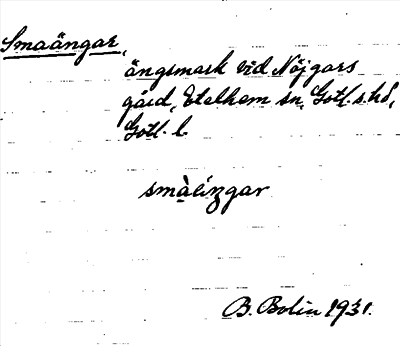 Smaängar,
ängsmark vid Nöjgars
gård, Etelhem sn, Gotl. s. hd,
Gotl. l.
smàeiŋgar
B. Bolin 1931.